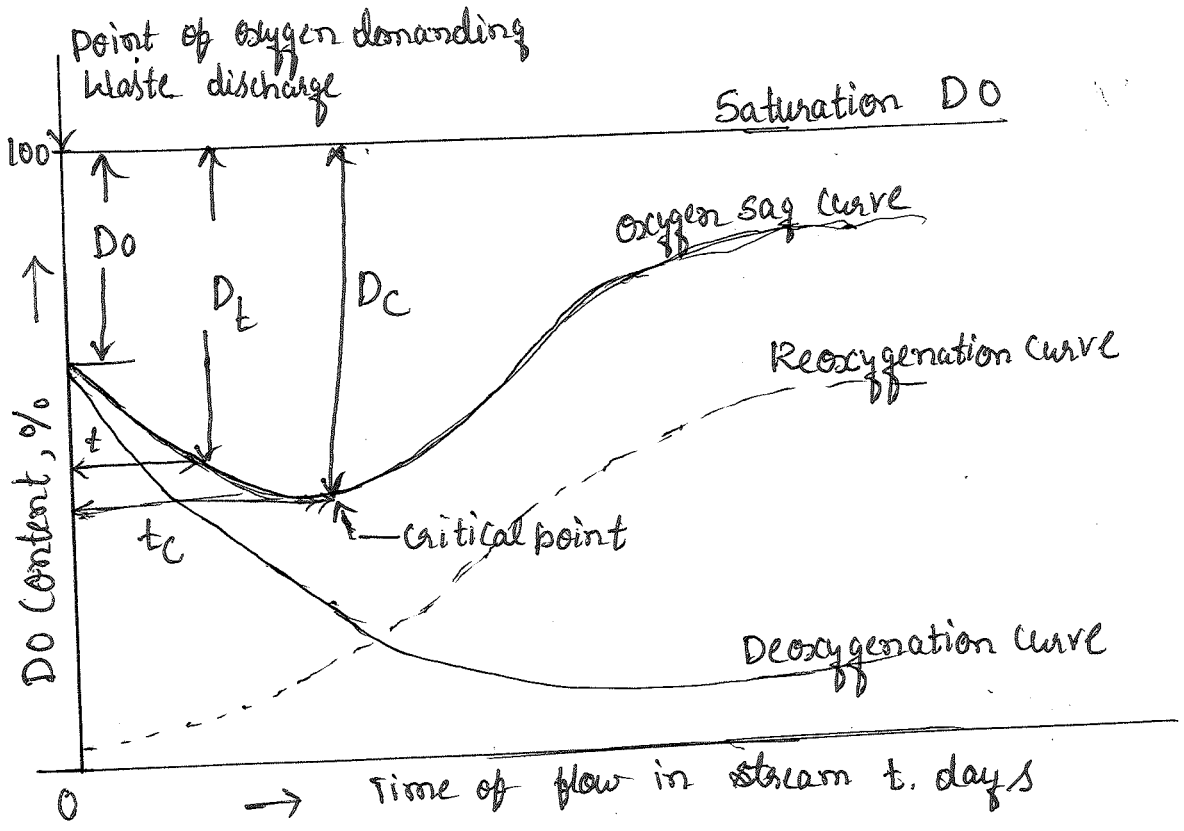 Point of oxygen demanding
Waste discharge
Saturation DO
100
Do
oxygen sag curve
Dt
Dc
Reoxygenation curve
t
tc
critical point
DO Content, %
Deoxygenation curve
0
Time of flow in stream t. days